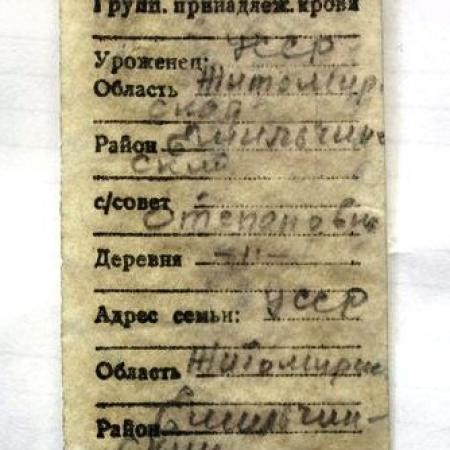 Групп. принадлеж. крови
Уроженец: УССР
Область Житомир
ская
Район Емильчин
ский
с/совет
Степановка
Деревня —"—
Адрес семьи: УССР
Область Житомирск
Район Емильчин-
ский